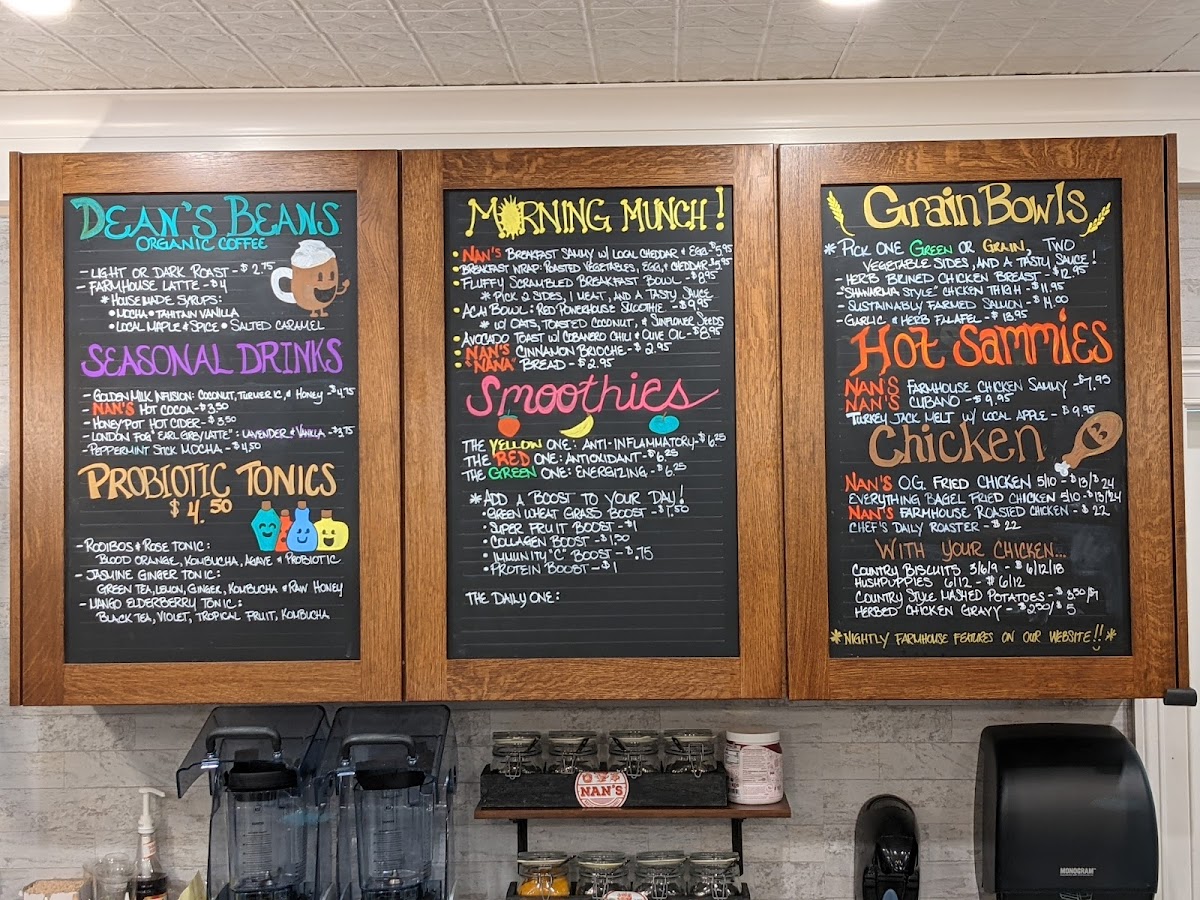 DEAN'S BEANS
ORGANIC COFFEE
- LIGHT OR DARK ROAST - $2.75
- FARMHOUSE LATTE - $4
* HOUSEMADE SYRUPS:
• MOCHA • TAHITAIN VANILLA
• LOCAL MAPLE & SPICE • SALTED CARAMEL
SEASONAL DRINKS
- GOLDEN MILK INFUSION: COCONUT, TURMERIC, & HONEY - $4.75
- NAN'S HOT COCOA - $3.50
- HONEYPOT HOT CIDER - $3.50
- LONDON FOG "EARL GREY LATTE": LAVENDER & VANILLA - $3.75
- PEPPERMINT STICK MOCHA - $4.50
PROBIOTIC TONICS
$4.50
- ROOIBOS & ROSE TONIC:
BLOOD ORANGE, KOMBUCHA, AGAVE & PROBIOTIC
- JASMINE GINGER TONIC:
GREEN TEA, LEMON, GINGER, KOMBUCHA & RAW HONEY
- MANGO ELDERBERRY TONIC:
BLACK TEA, VIOLET, TROPICAL FRUIT, KOMBUCHA
MORNING MUNCH!
• NAN'S BREAKFAST SAMMY W/ LOCAL CHEDDAR & EGG - $5.95
• BREAKFAST WRAP: ROASTED VEGETABLES, EGG, & CHEDDAR $5.95
• FLUFFY SCRAMBLED BREAKFAST BOWL - $8.95
* PICK 2 SIDES, 1 MEAT, AND A TASTY SAUCE
• ACAI BOWL: RED POWERHOUSE SMOOTHIE - $9.95
* W/ OATS, TOASTED COCONUT, & SUNFLOWER SEEDS
• AVOCADO TOAST W/ COBANERO CHILI & OLIVE OIL - $8.95
• NAN'S CINNAMON BRIOCHE - $2.95
• "NANA" BREAD - $2.95
Smoothies
THE YELLOW ONE: ANTI-INFLAMMATORY - $6.25
THE RED ONE: ANTIOXIDANT - $6.25
THE GREEN ONE: ENERGIZING - $6.25
* ADD A BOOST TO YOUR DAY!
• GREEN WHEAT GRASS BOOST - $1.50
• SUPER FRUIT BOOST - $1
• COLLAGEN BOOST - $1.50
• IMMUNITY "C" BOOST - $.75
• PROTEIN BOOST - $1
THE DAILY ONE:
Grain Bowls
* PICK ONE GREEN OR GRAIN, TWO
VEGETABLE SIDES, AND A TASTY SAUCE!
- HERB BRINED CHICKEN BREAST - $12.95
- "SHAWARMA STYLE" CHICKEN THIGH - $11.95
- SUSTAINABLY FARMED SALMON - $14.00
- GARLIC & HERB FALAFEL - $13.95
Hot Sammies
NAN'S FARMHOUSE CHICKEN SAMMY - $7.95
NAN'S CUBANO - $9.95
TURKEY JACK MELT W/ LOCAL APPLE - $9.95
Chicken
NAN'S O.G. FRIED CHICKEN 5/10 - $13/$24
EVERYTHING BAGEL FRIED CHICKEN 5/10 - $13/$24
NAN'S FARMHOUSE ROASTED CHICKEN - $22
CHEF'S DAILY ROASTER - $22
WITH YOUR CHICKEN...
COUNTRY BISCUITS 3/6/9 - $6/12/18
HUSHPUPPIES 6/12 - $6/12
COUNTRY STYLE MASHED POTATOES - $3.50/$7
HERBED CHICKEN GRAVY - $2.50/$5
* NIGHTLY FARMHOUSE FEATURES ON OUR WEBSITE!! *
NAN'S
NAN'S
MONOGRAM